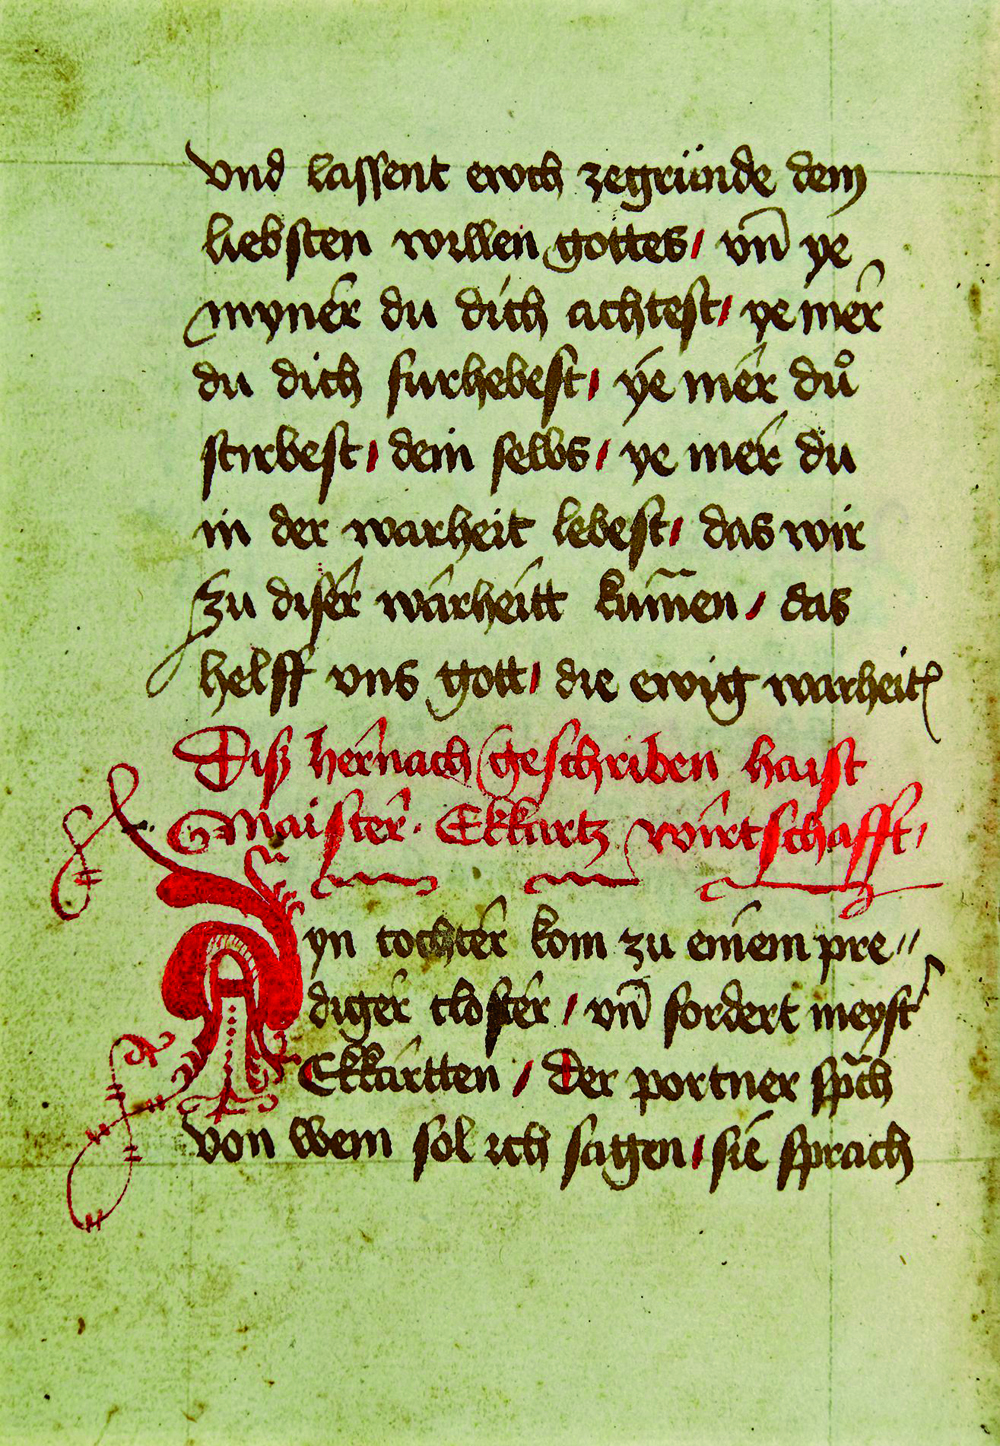 vnd lassent ewch zegründe dem
liebsten willen gottes / vn̄ ye
myner du dich achtest / ye mer
du dich furhebest / ye mer dů
stirbest / dein selbs / ye mer du
in der warheit lebest / das wir
zu diser warheitt kum̄en / das
helff vns gott / die ewig warheit
Diß hernach geschriben haist
Maister Ekkartz wirtschafft /
Ayn tochter kom zu einem pre//
diger closter / vn̄ fordert meyst'
Ekkartten / der portner sp̄ch
von wem sol ich sagen / sie sprach